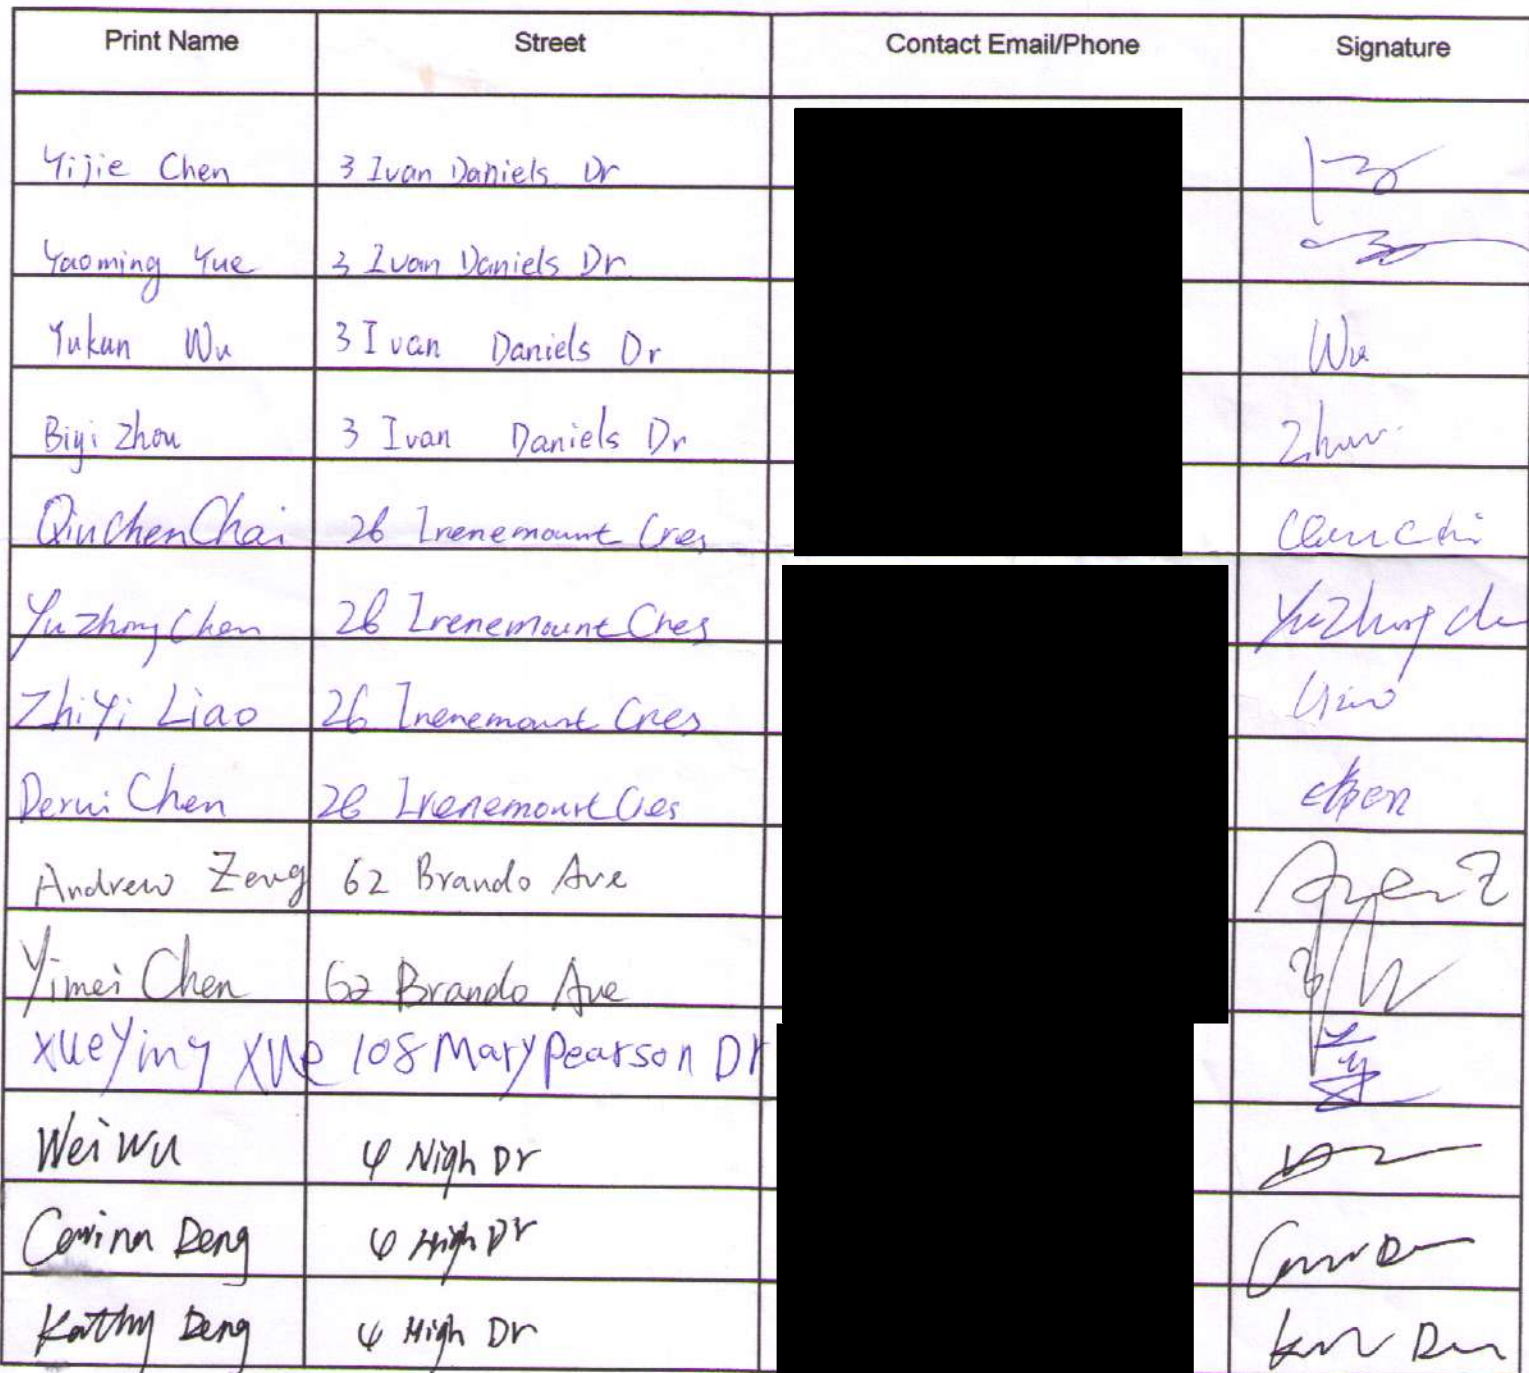 Print Name Street Contact Email/Phone Signature
Yijie Chen 3 Ivan Daniels Dr
Yaoming Yue 3 Ivan Daniels Dr
Yukun Wu 3 Ivan Daniels Dr Wu
Biyi Zhou 3 Ivan Daniels Dr Zhou
QinChen Chai 26 Irenemount Cres
YuZhong Chen 26 Irenemount Cres YuZhong
ZhiYi Liao 26 Irenemount Cres Liao
Derui Chen 26 Irenemount Cres Chen
Andrew Zeng 62 Brando Ave
Yimei Chen 62 Brando Ave
XueYing XUe 108 Mary Pearson Dr
Wei Wu 4 High Dr
Corinna Deng 4 High Dr
Kathy Deng 4 High Dr